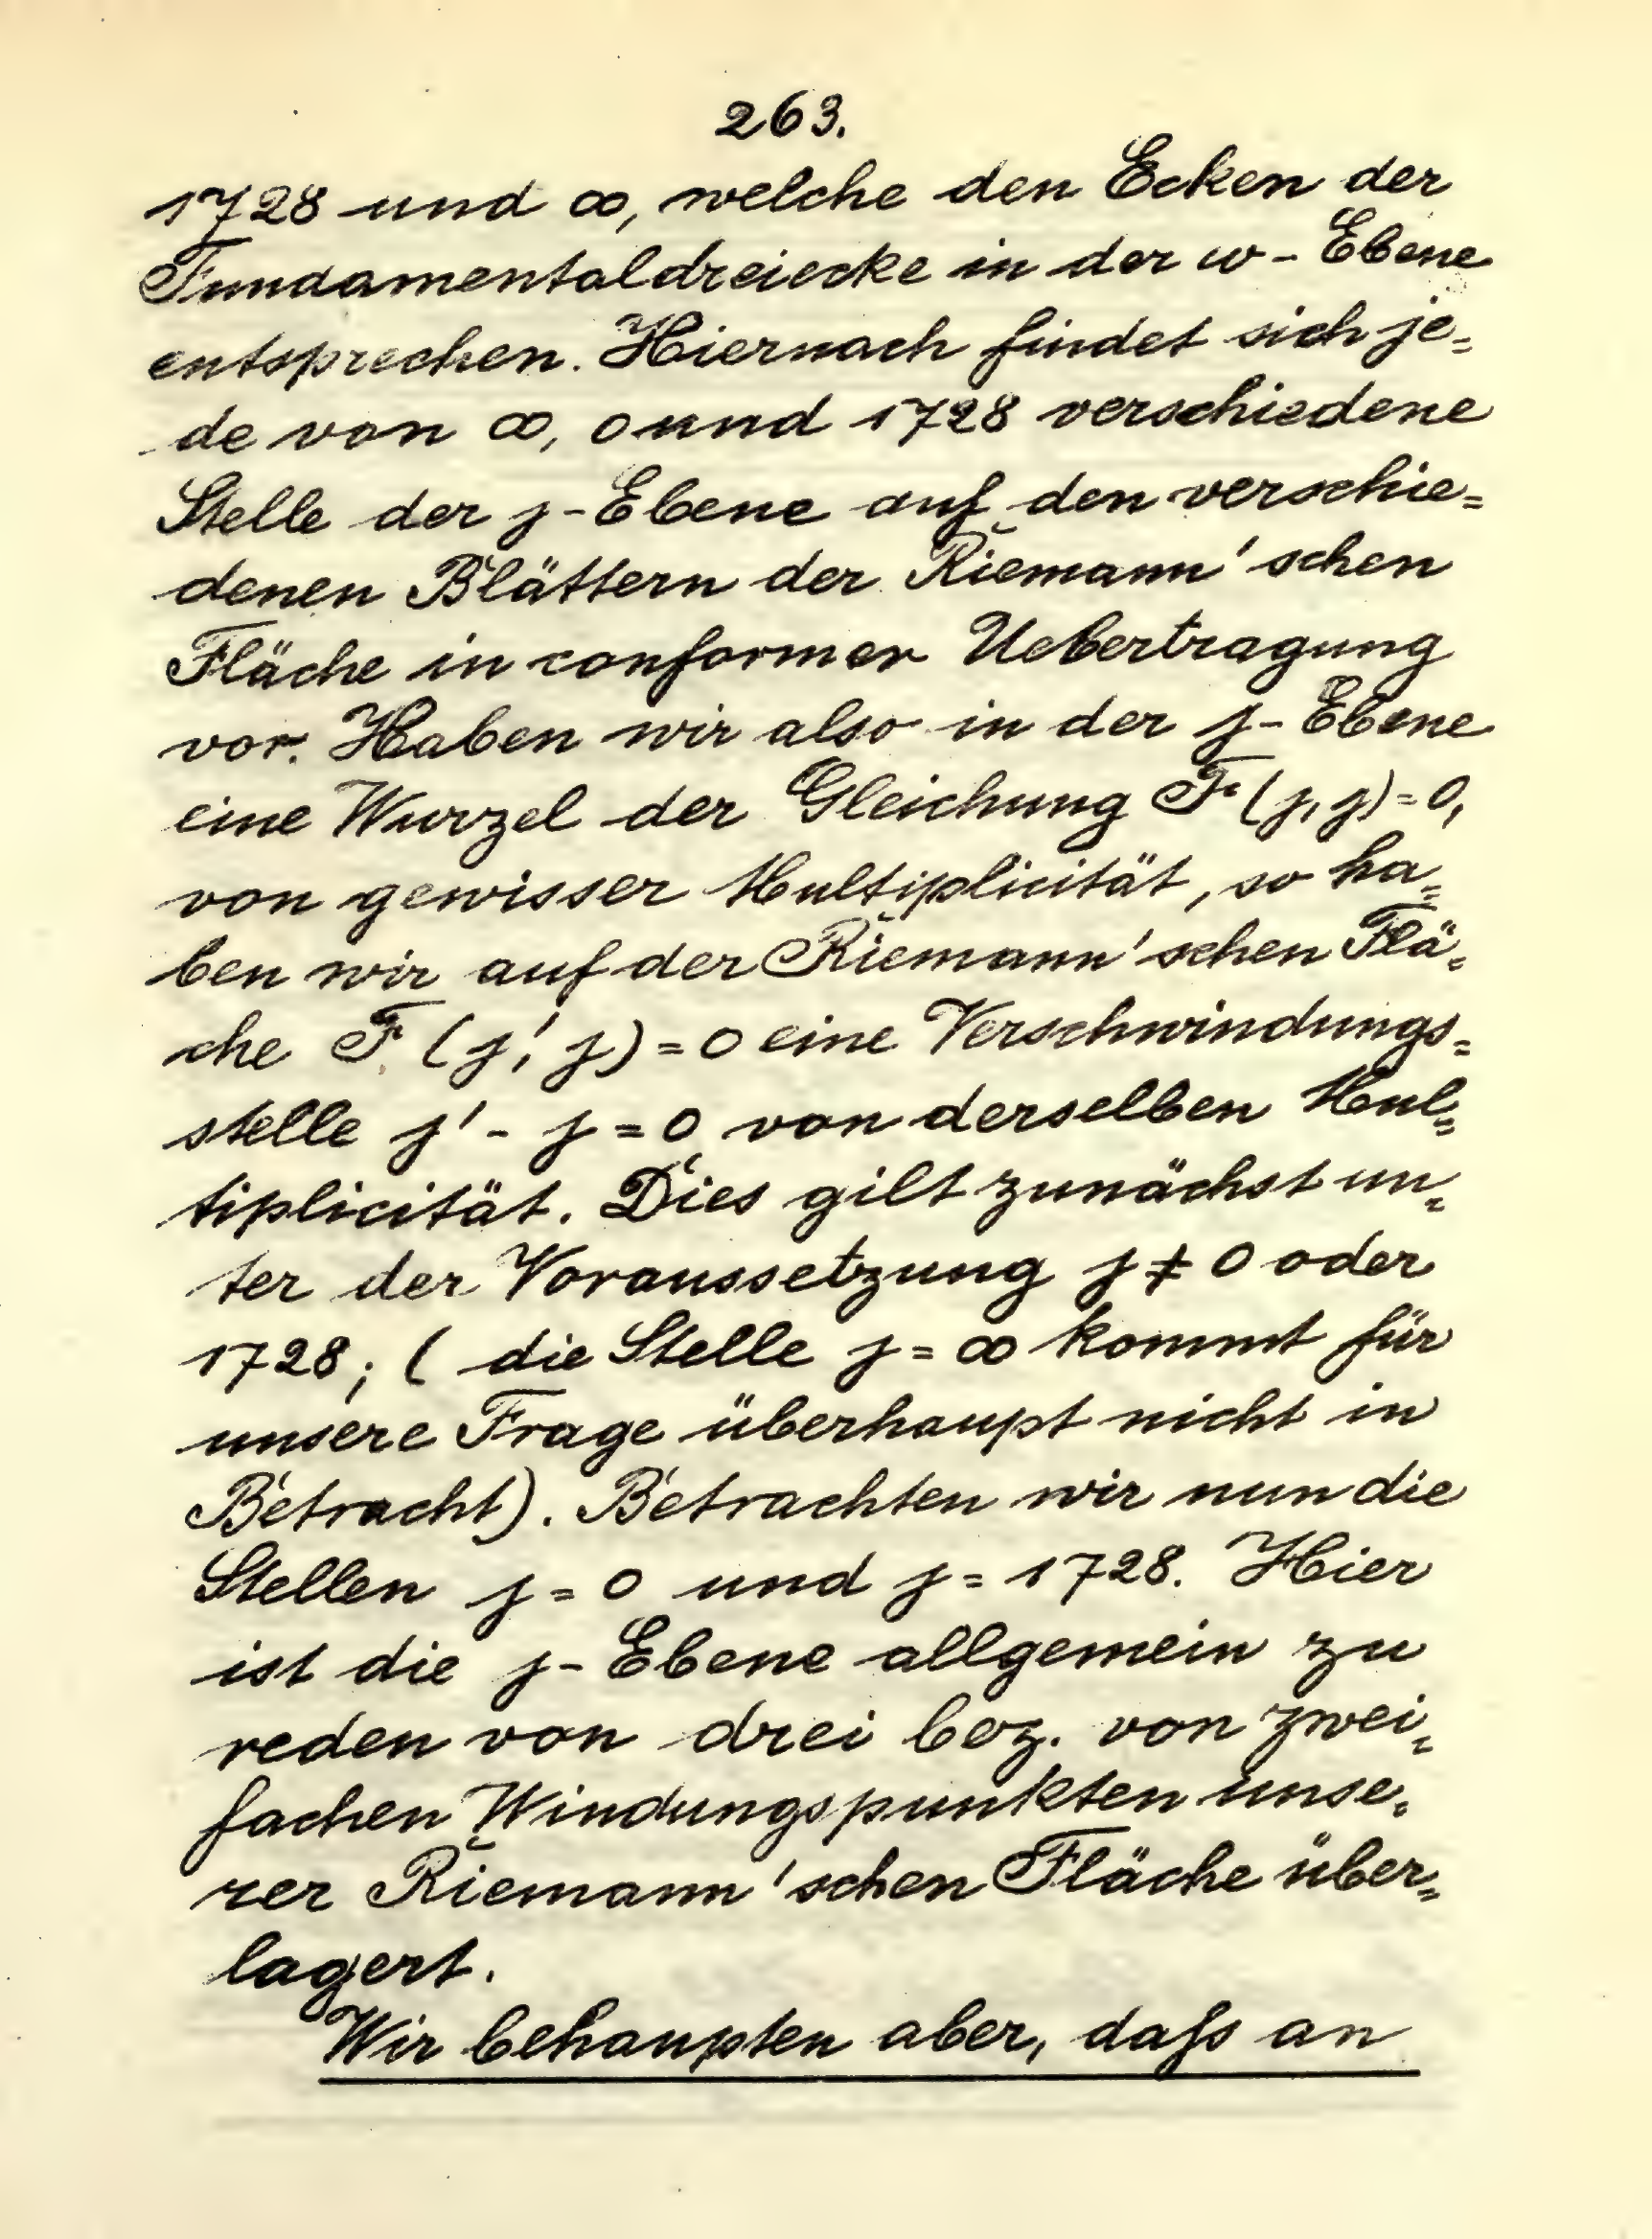 263.
1728 und ∞, welche den Ecken der
Fundamentaldreiecke in der ω-Ebene
entsprechen. Hiernach findet sich je=
de von ∞, 0 und 1728 verschiedene
Stelle der j-Ebene auf den verschie=
denen Blättern der Riemann'schen
Fläche in conformer Uebertragung
vor. Haben wir also in der j-Ebene
eine Wurzel der Gleichung F(j, j)=0,
von gewisser Multiplicität, so ha=
ben wir auf der Riemann'schen Flä=
che F(j', j)=0 eine Verschwindungs=
stelle j'-j=0 von derselben Mul=
tiplicität. Dies gilt zunächst un=
ter der Voraussetzung j≠0 oder
1728; (die Stelle j=∞ kommt für
unsere Frage überhaupt nicht in
Betracht). Betrachten wir nun die
Stellen j=0 und j=1728. Hier
ist die j-Ebene allgemein zu
reden von drei bez. von zwei=
fachen Windungspunkten unse=
rer Riemann'schen Fläche über=
lagert.
Wir behaupten aber, daſs an